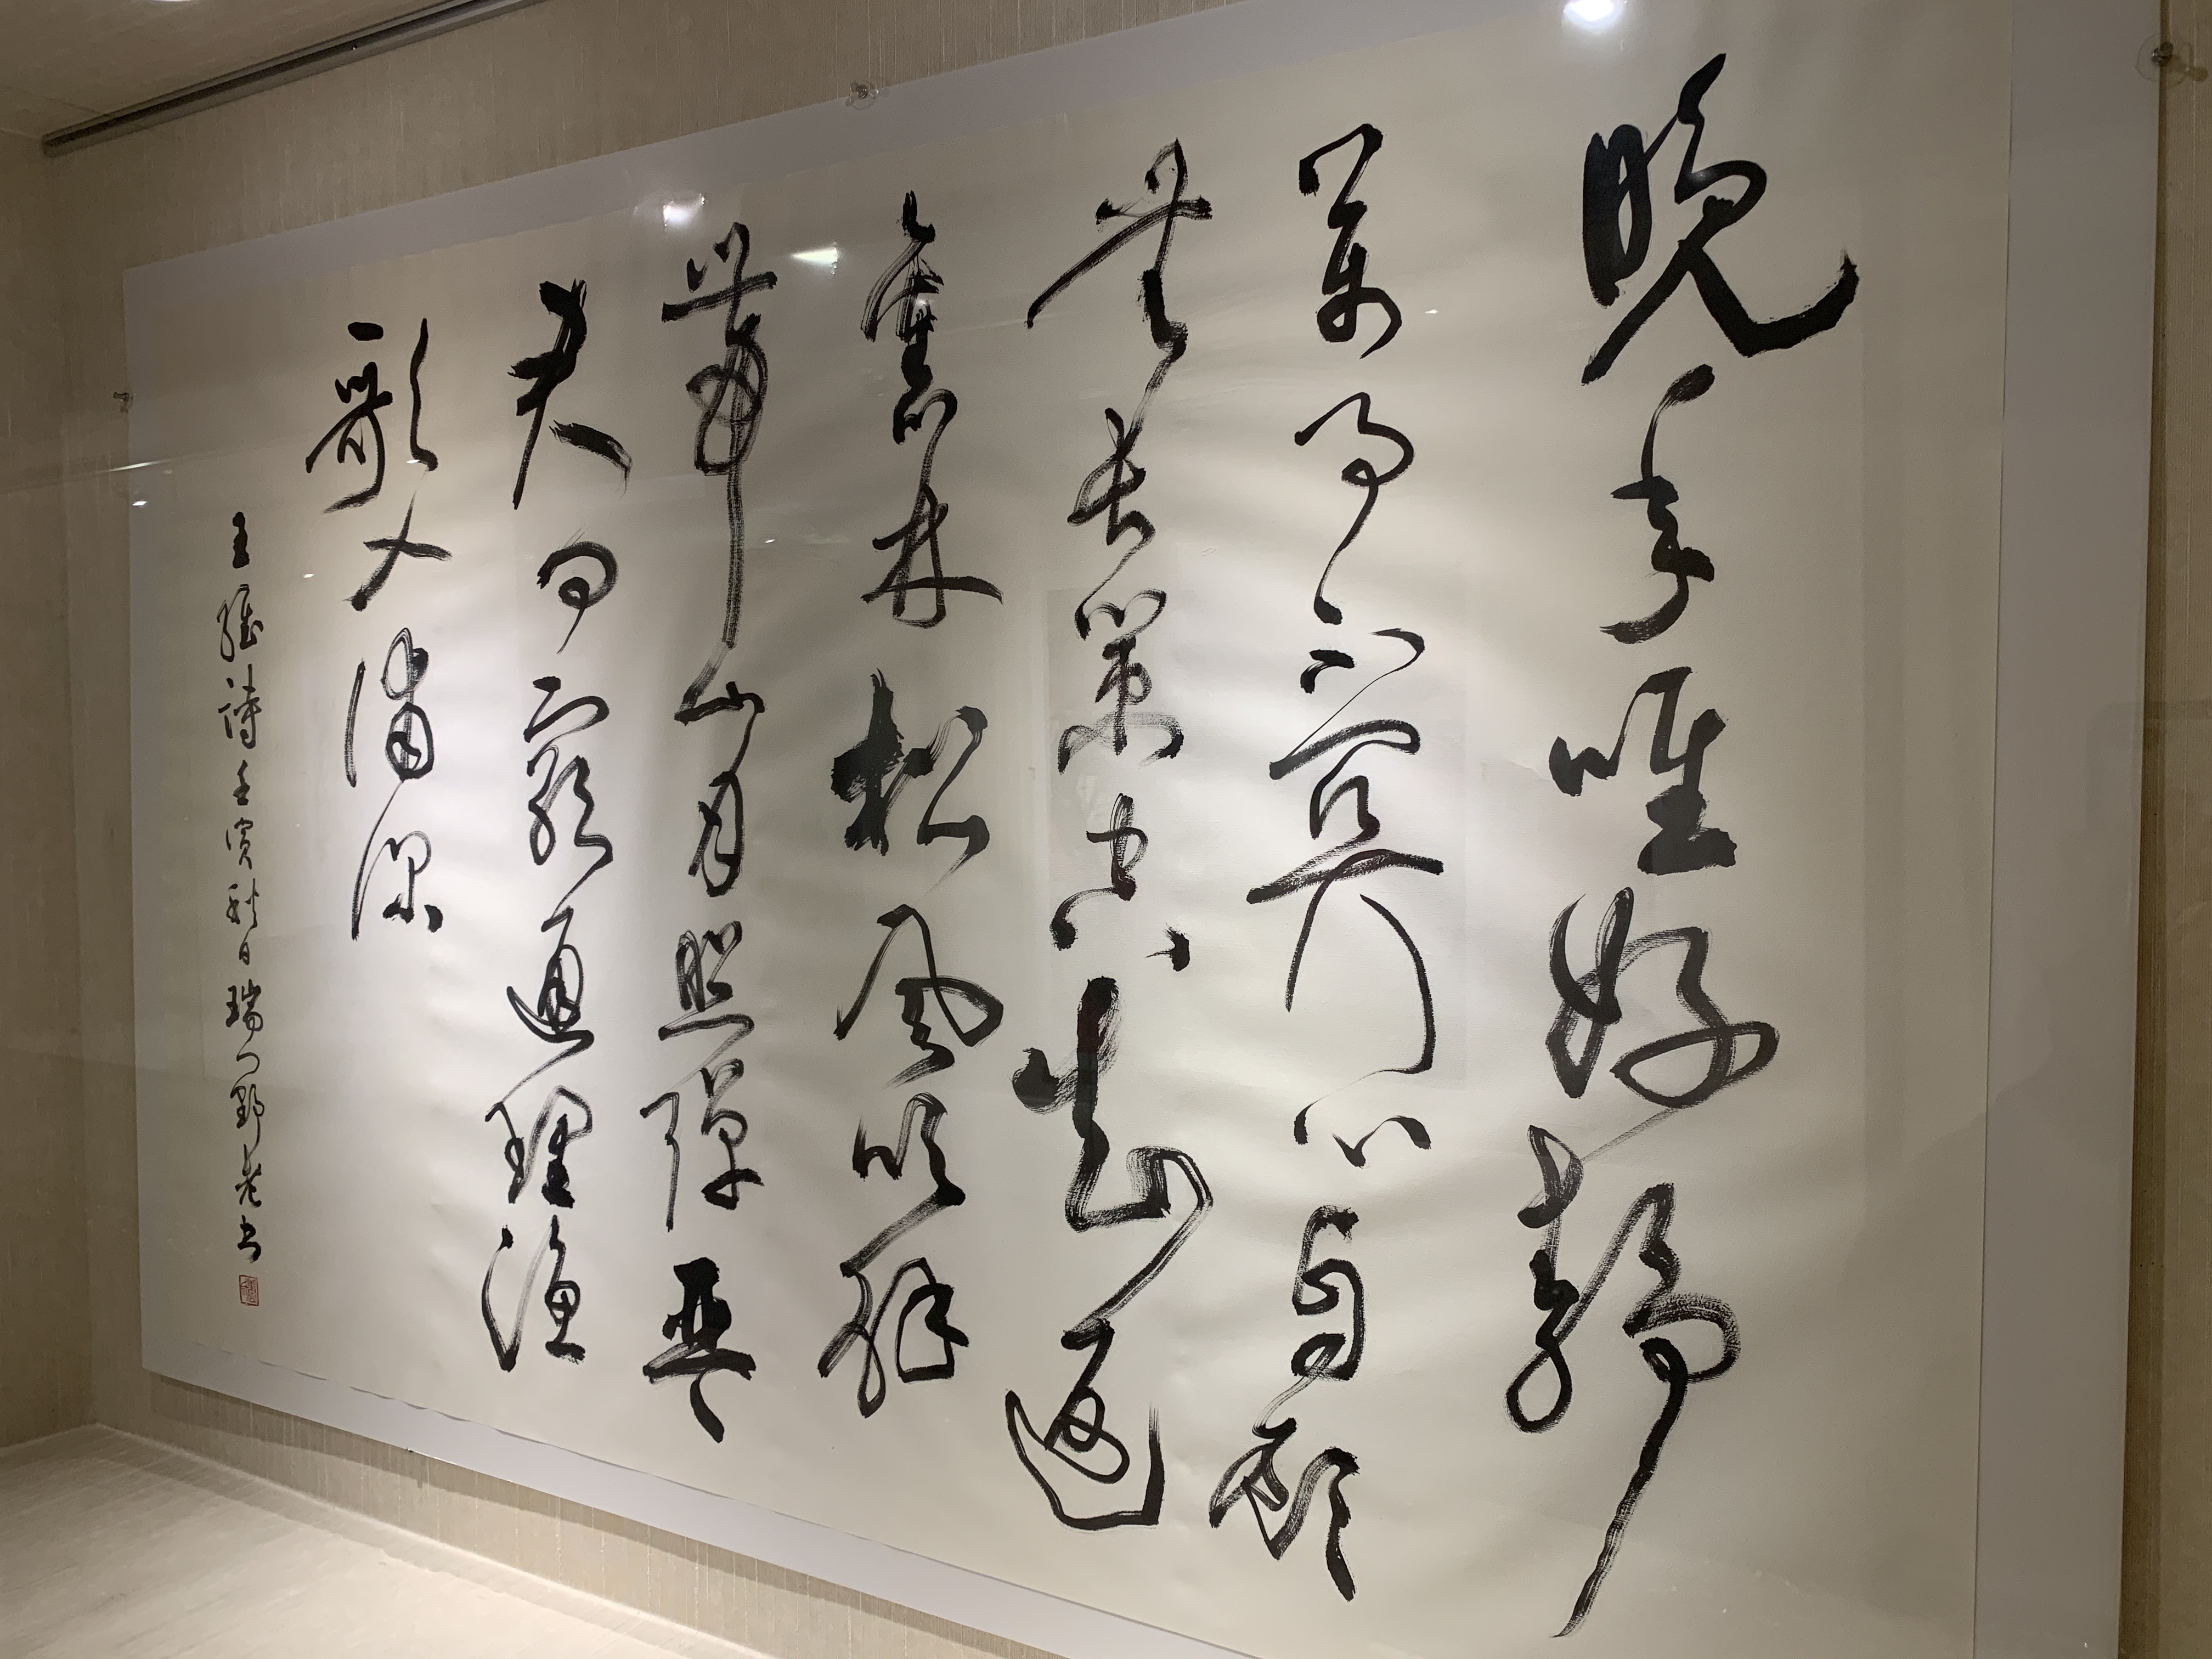 晚年唯好靜
萬事不關心自顧
無長策空知返
舊林松風吹解
帶山月照彈琴
君問窮通理漁
歌入浦深
王維詩壬寅秋日瑞野老書